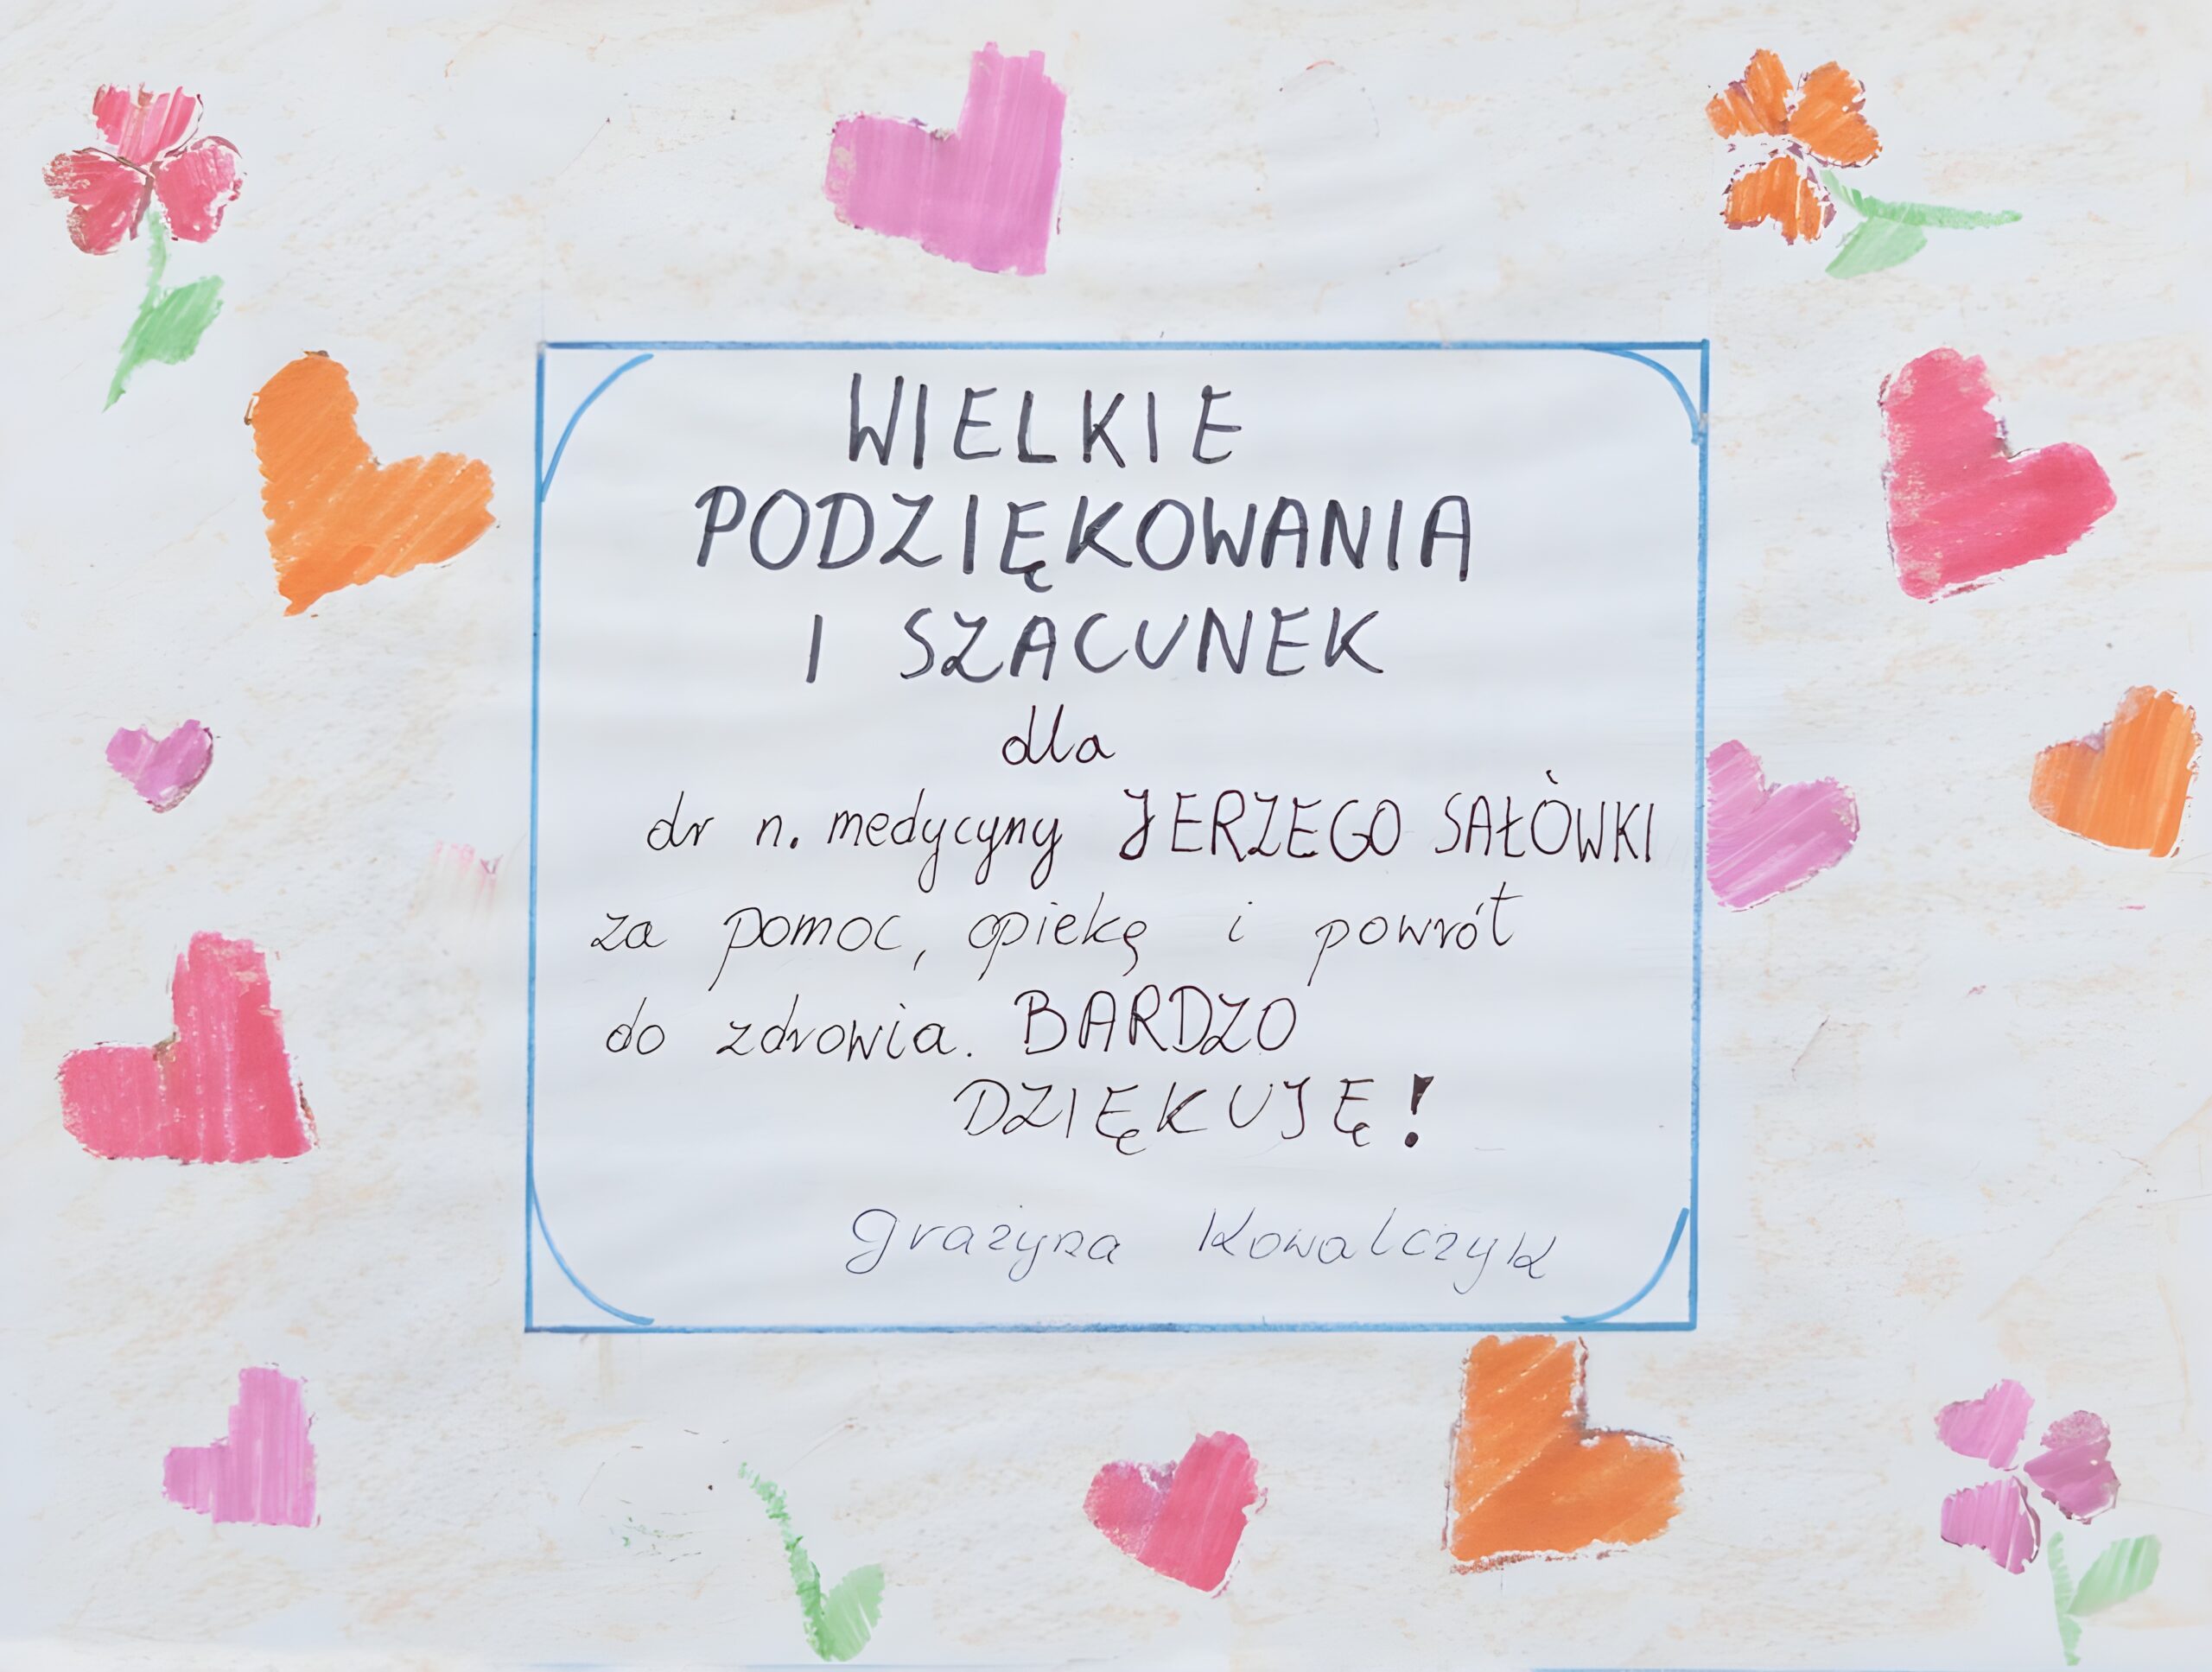 WIELKIE
PODZIĘKOWANIA
I SZACUNEK
dla
dr n. medycyny JERZEGO SAŁÓWKI
za pomoc, opiekę i powrót
do zdrowia. BARDZO
DZIĘKUJĘ!
Grażyna Kowalczyk